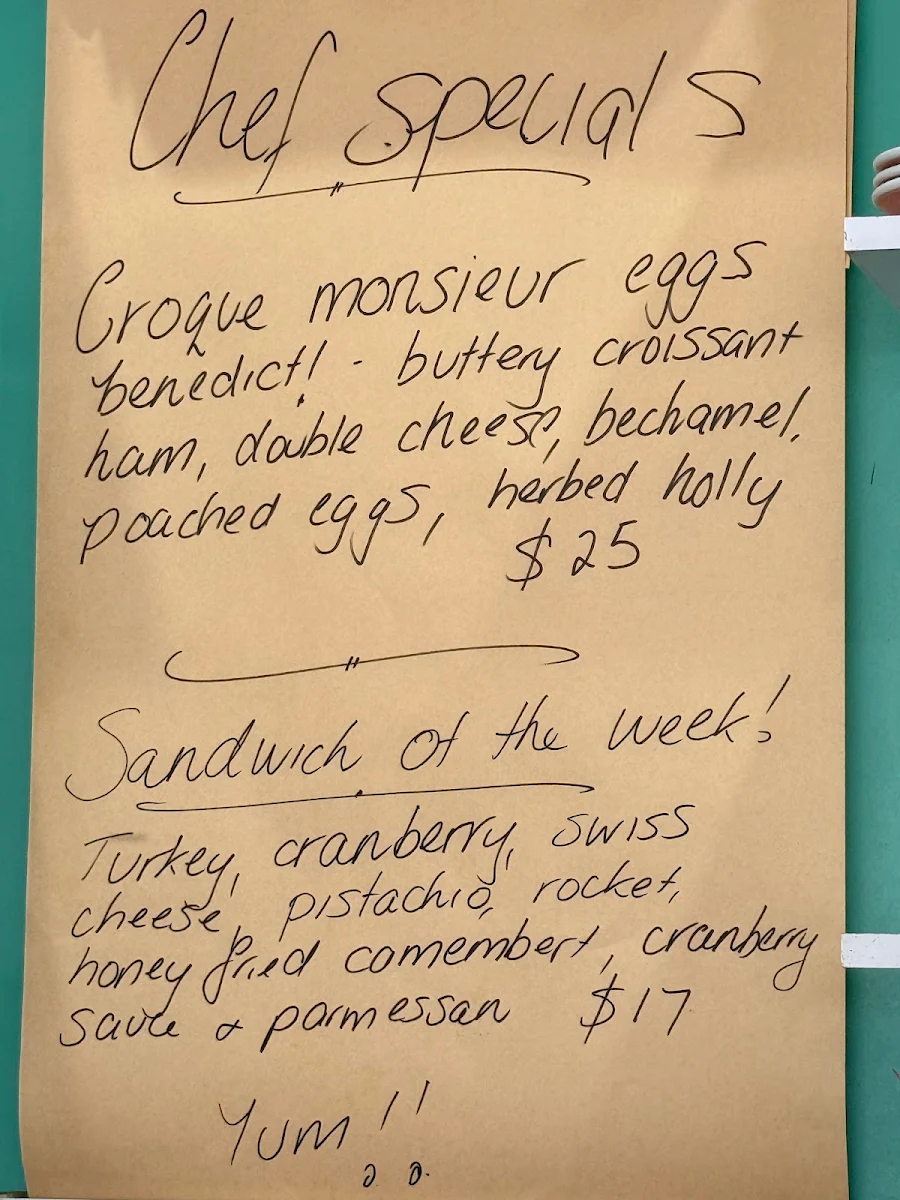 Chef specials
Croque monsieur eggs
benedict! - buttery croissant
ham, double cheese, bechamel,
poached eggs, herbed holly
$25
Sandwich of the week!
Turkey, cranberry, swiss
cheese, pistachio, rocket,
honey fried comembert, cranberry
sauce & parmessan $17
Yum!!